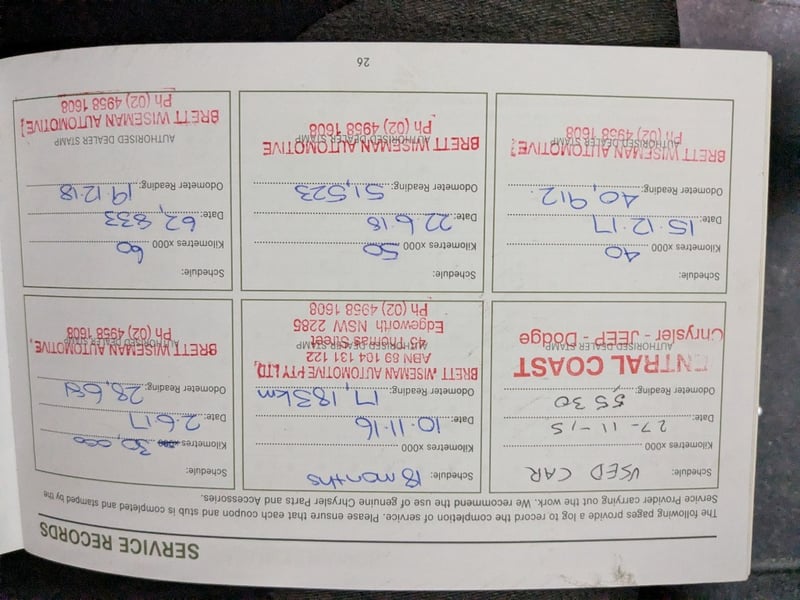 SERVICE RECORDS
The following pages provide a log to record the completion of service. Please ensure that each coupon and stub is completed and stamped by the
Service Provider carrying out the work. We recommend the use of genuine Chrysler Parts and Accessories.
Schedule: USED CAR
Kilometres x000
Date: 27-11-15
Odometer Reading: 5530
ENTRAL COAST
AUTHORISED DEALER STAMP
Chrysler - JEEP - Dodge
Schedule: 18 months
Kilometres x000
Date: 10.11.16
Odometer Reading: 17,183km
BRETT WISEMAN AUTOMOTIVE PTY LTD
ABN 69 104 131 122
AUTHORISED DEALER STAMP
45 Thomas Street
Edgeworth NSW 2285
Ph (02) 4958 1608
Schedule:
Kilometres x000 30,000
Date: 2.6.17
Odometer Reading: 28,681
BRETT WISEMAN AUTOMOTIVE
AUTHORISED DEALER STAMP
Ph (02) 4958 1608
Schedule:
Kilometres x000 40
Date: 15.12.17
Odometer Reading: 40,912
BRETT WISEMAN AUTOMOTIVE
AUTHORISED DEALER STAMP
Ph (02) 4958 1608
Schedule:
Kilometres x000 50
Date: 22.6.18
Odometer Reading: 51,523
BRETT WISEMAN AUTOMOTIVE
AUTHORISED DEALER STAMP
Ph (02) 4958 1608
Schedule:
Kilometres x000 60
Date: 62,833
Odometer Reading: 19.12.18
AUTHORISED DEALER STAMP
BRETT WISEMAN AUTOMOTIVE
Ph (02) 4958 1608
26